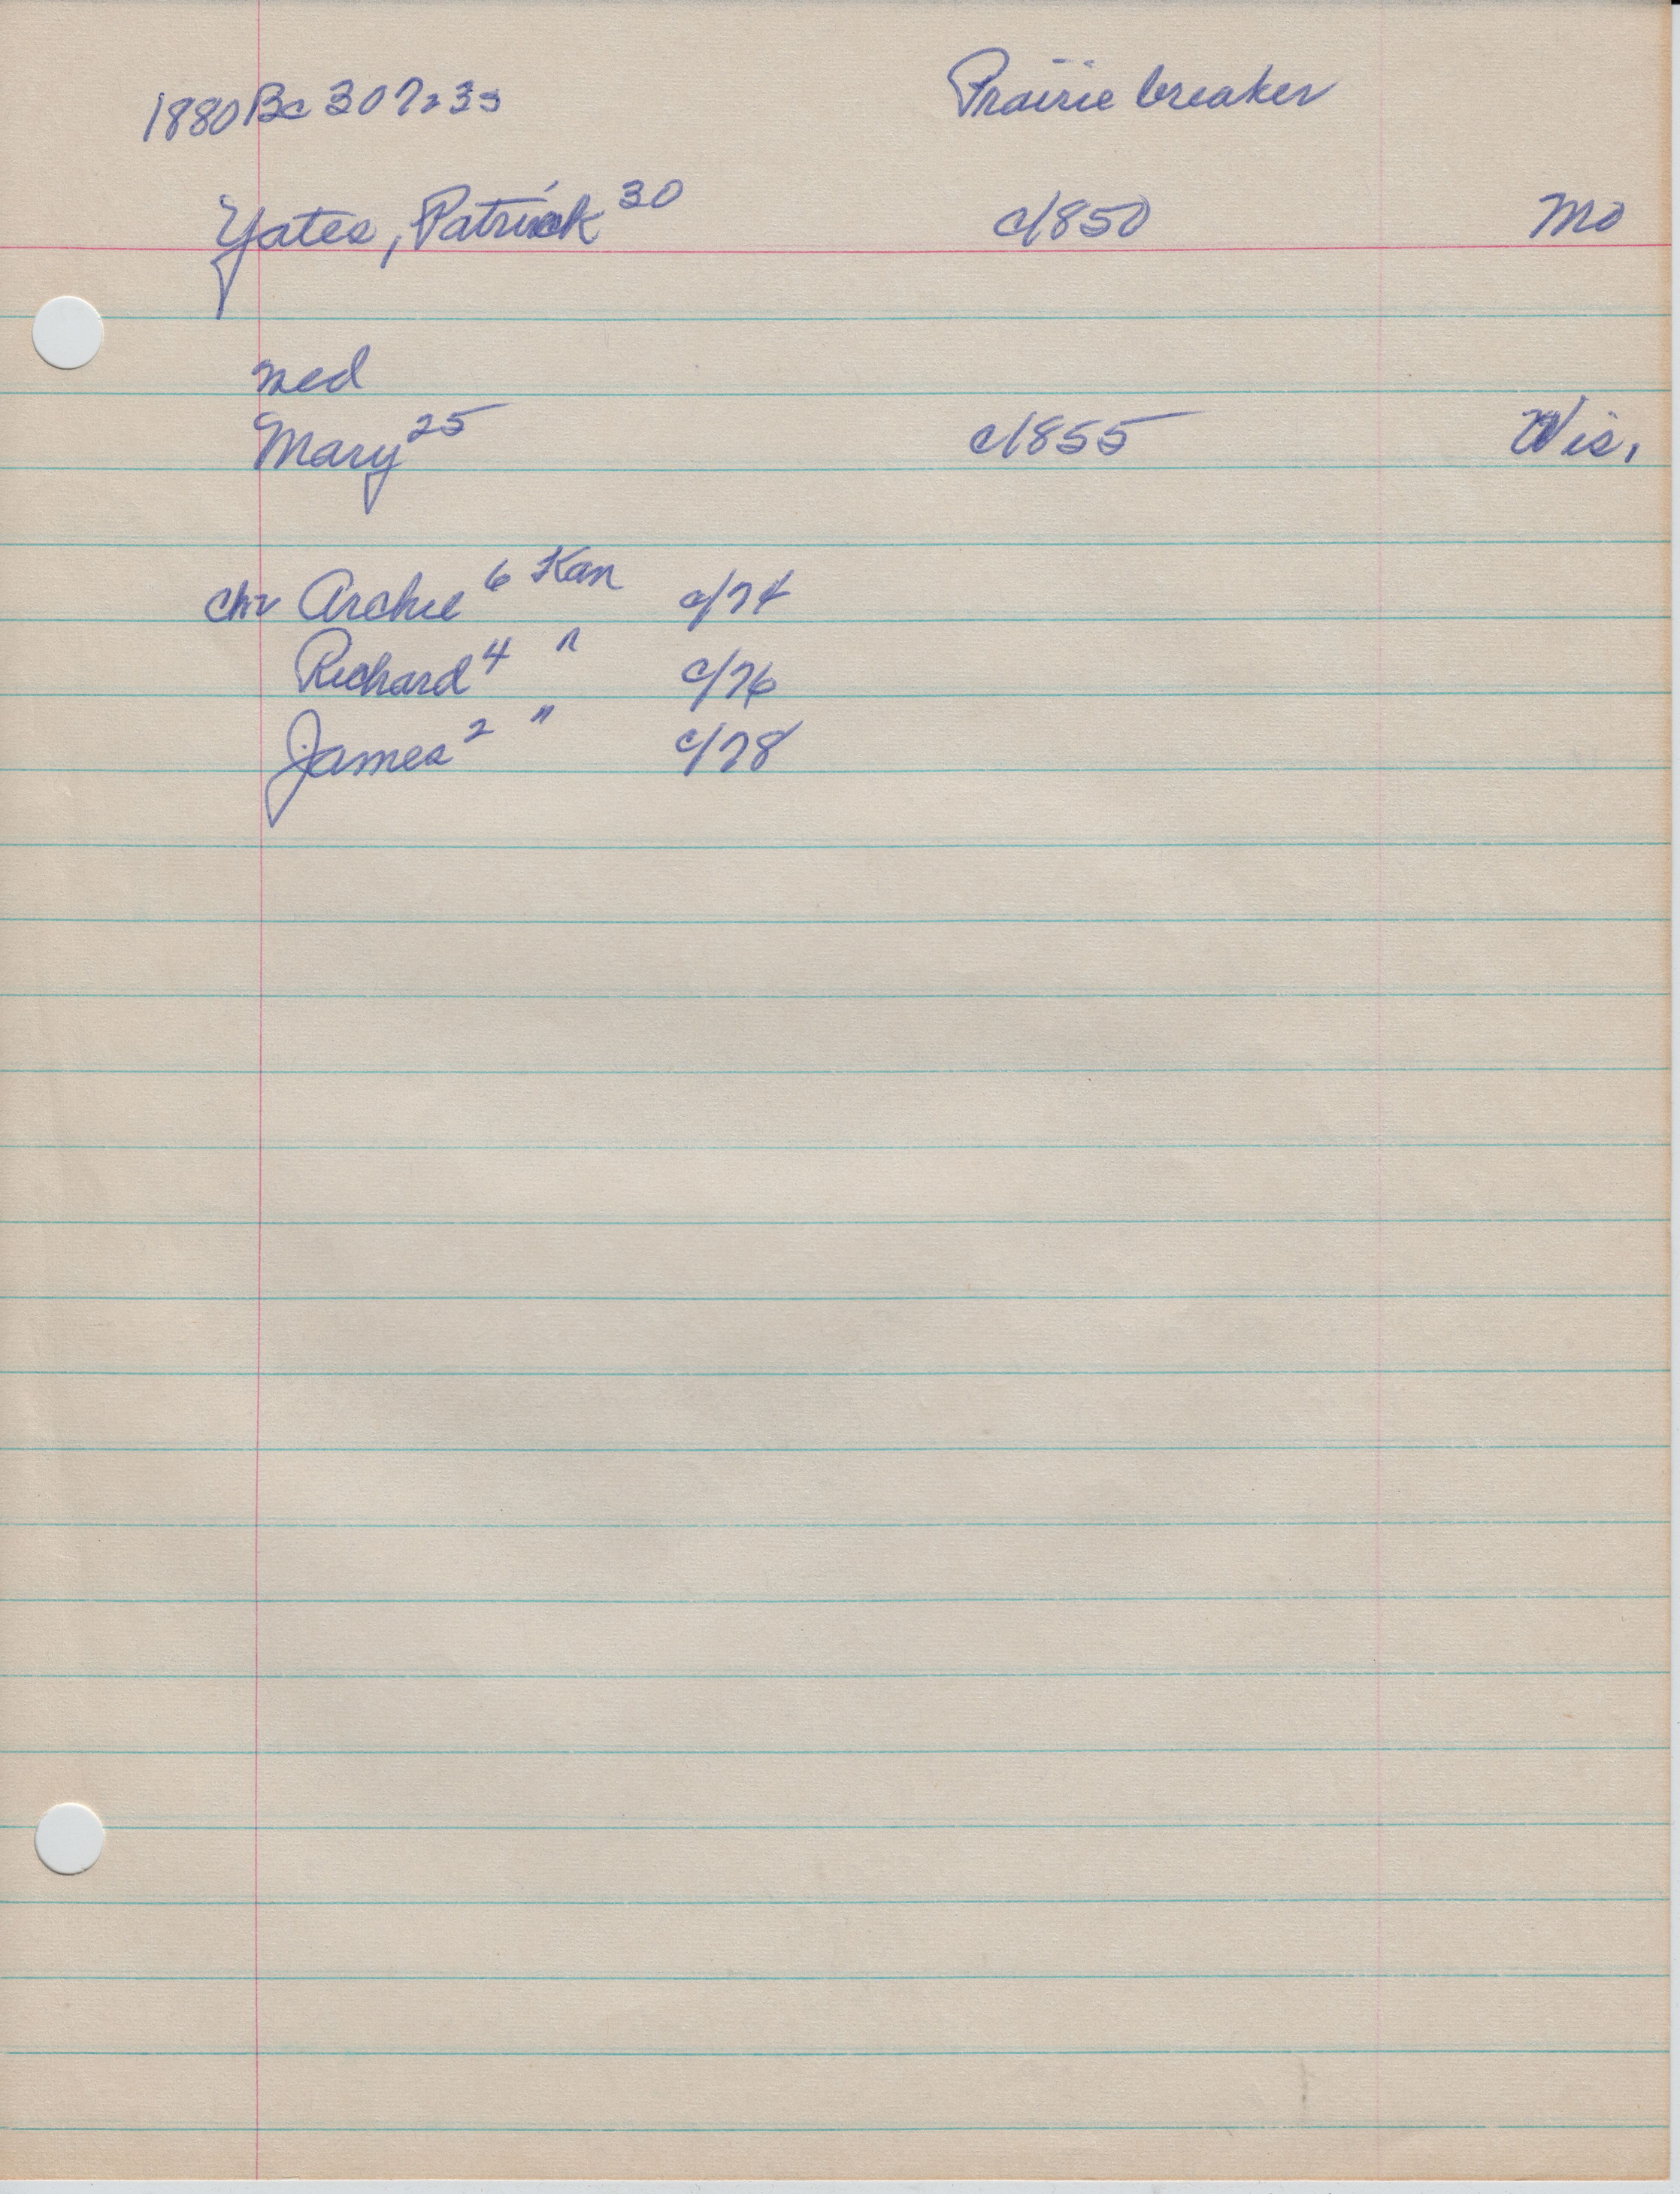 1880 Bc 307233 Prairie breaker
Yates, Patrick 30 c/850 Mo
med
Mary 25 c/855 Wis.
chr Archie 6 Kan c/74
Richard 4 " c/76
James 2 " c/78